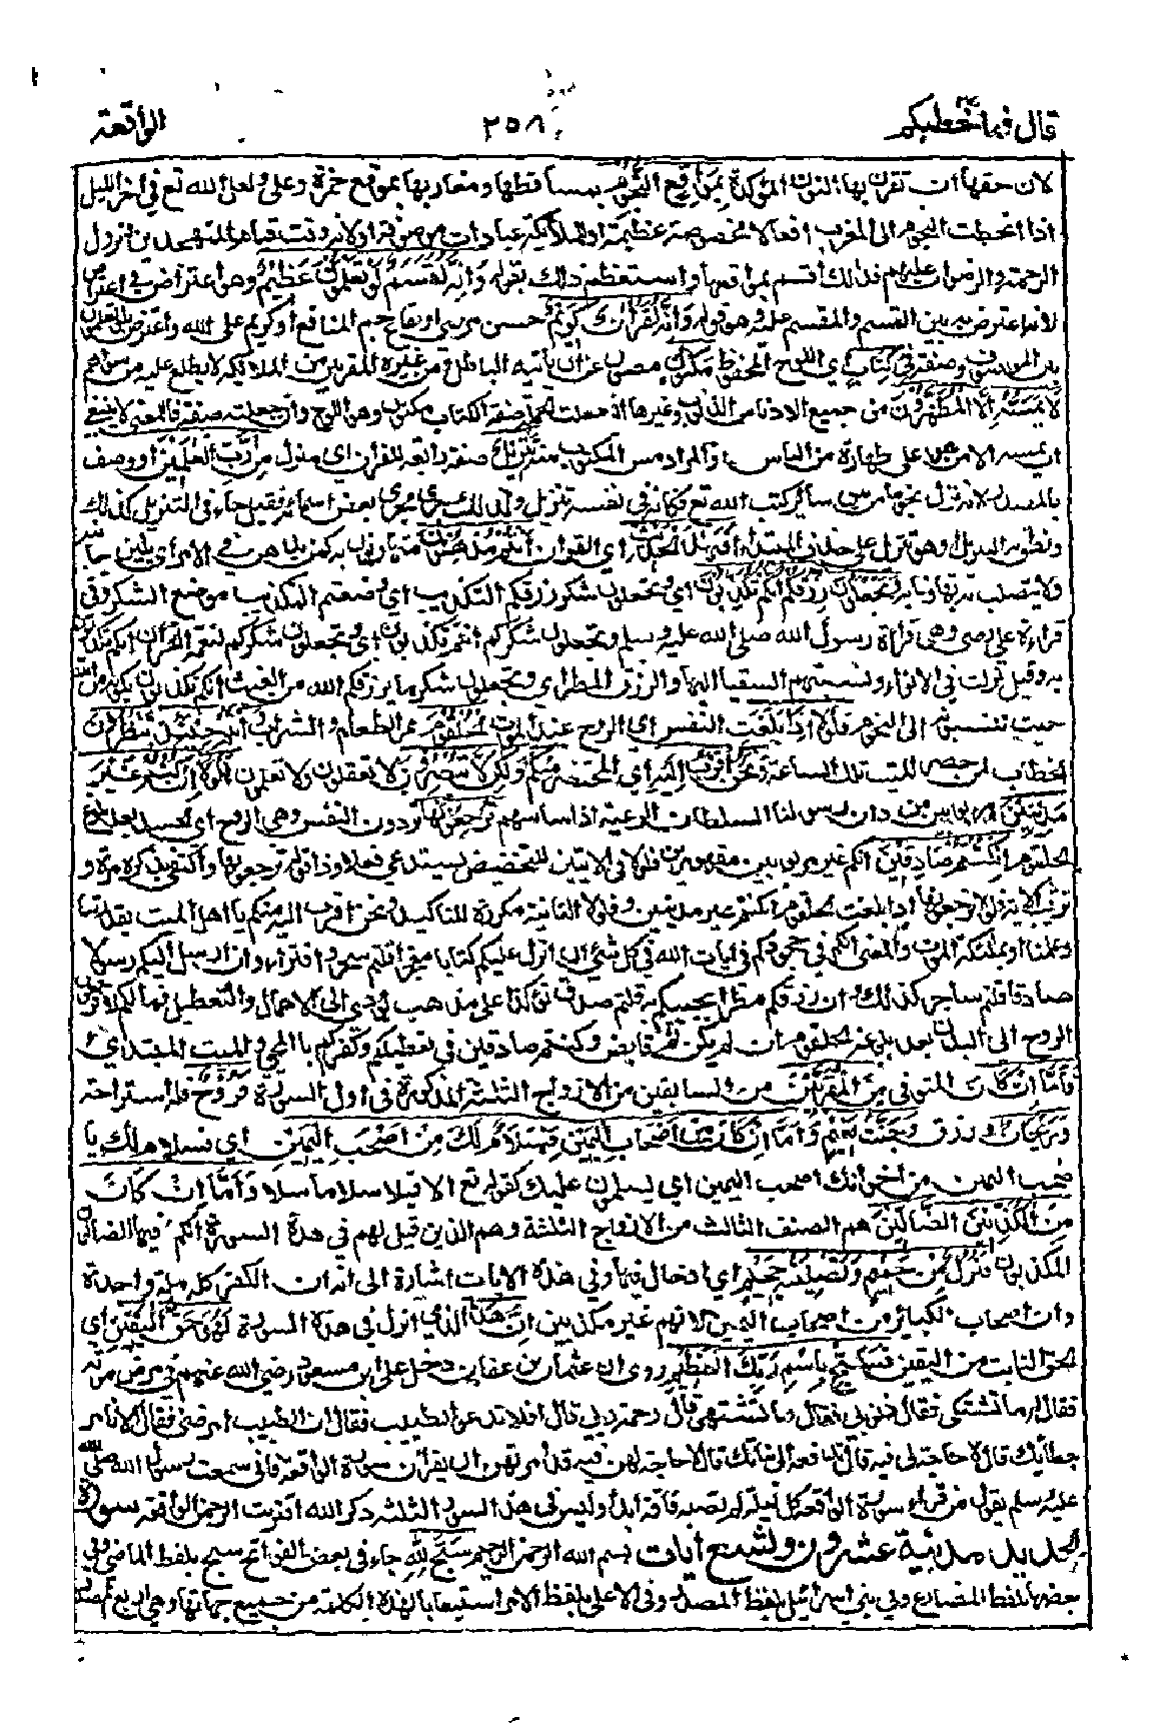 قال فما خطبكم ٢٥٨ الواقعة
لان حقها ان تقرن بها النون المؤكدة بمواقع النجوم بمساقطها ومغاربها بموقع حمزة وعلى ولعل الله تع فى اخر الليل
اذا انحطت النجوم الى المغرب افعالا مخصوصة عظيمة او للملائكة عبادات موصوفة او لانه وقت قيام المتهجدين ونزول
الرحمة والرضوان عليهم فلذلك اقسم بمواقعها واستعظم ذلك بقوله وَاِنَّهُ لَقَسَمٌ لَوْ تَعْلَمُونَ عَظِيْمٌ وهو اعتراض فى اعتراض
لانه اعترض به بين القسم والمقسم عليه وهو قوله وَاِنَّهُ لَقُرْاٰنٌ كَرِيْمٌ حسن مرضى او نفاع جم المنافع او كريم على الله واعترض بلو تعلمون
بين الموصوف وصفته فِيْ كِتَابٍ اى اللوح المحفوظ مَكْنُوْنٍ مصون عن ان ياتيه الباطل او من غير المقربين من الملائكة لا يطلع عليه من سواهم
لَا يَمَسُّهُ اِلَّا الْمُطَهَّرُوْنَ من جميع الادناس الذنوب وغيرها ان جعلت الجملة صفة لكتاب مكنون وهو اللوح وان جعلته صفة فالمعنى لا ينبغى
ان يمسه الا من هو على طهارة من الناس والمراد مس المكتوب منه تَنْزِيْلٌ صفة رابعة للقران اى منزل مِنْ رَّبِّ الْعٰلَمِيْنَ او وصف
بالمصدر لانه نزل نجوما من بين سائر كتب الله تع فكانه فى نفسه تنزيل ولذلك جرى مجرى بعض اسمائه فقيل جاء فى التنزيل كذا
ونطق به التنزيل او هو تنزيل على حذف المبتدا اَفَبِهٰذَا الْحَدِيْثِ اى القران اَنْتُمْ مُّدْهِنُوْنَ متهاونون به كمن يدهن فى الامر اى يلين جانبه
ولا يتصلب فيه تهاونا به وَتَجْعَلُوْنَ رِزْقَكُمْ اَنَّكُمْ تُكَذِّبُوْنَ اى وتجعلون شكر رزقكم التكذيب اى وضعتم التكذيب موضع الشكر وفى
قراءة على رضى وهى قراءة رسول الله صلى الله عليه وسلم وتجعلون شكركم انكم تكذبون اى وتجعلون شكركم لنعمة القران انكم تكذبون
به وقيل نزلت فى الانواء ونسبتهم السقيا اليها والرزق المطر اى وتجعلون شكر ما يرزقكم الله من الغيث انكم تكذبون بكونه من الله
حيث تنسبونه الى النجوم فَلَوْلَا اِذَا بَلَغَتِ النفس اى الروح عند الموت الْحُلْقُوْمَ ممر الطعام والشراب وَاَنْتُمْ حِيْنَئِذٍ تَنْظُرُوْنَ
الخطاب لمن حضر الميت تلك الساعة وَنَحْنُ اَقْرَبُ اِلَيْهِ اى المحتضر مِنْكُمْ وَلٰكِنْ لَّا تُبْصِرُوْنَ لا تعقلون ولا تعلمون فَلَوْلَا اِنْ كُنْتُمْ غَيْرَ
مَدِيْنِيْنَ مربوبين من دان السلطان الرعية اذا ساسهم تَرْجِعُوْنَهَا تردون النفس وهى الروح الى الجسد بعد بلوغ
الحلقوم اِنْ كُنْتُمْ صَادِقِيْنَ انكم غير مربوبين مقهورين فلولا فى الايتين للتحضيض يستدعى فعلا وذا قوله ترجعونها واكتفى بذكره مرة و
ترتيب الاية فلولا ترجعونها اذا بلغت الحلقوم ان كنتم غير مدينين وفلولا الثانية مكررة للتاكيد ونحن اقرب اليه منكم يا اهل الميت بقدرتنا
وعلمنا او بملئكة الموت والمعنى انكم فى جحودكم ايات الله فى كل شئ ان انزل عليكم كتابا معجزا قلتم سحر وافتراء وان ارسل اليكم رسولا
صادقا قلتم ساحر كذاب وان رزقكم مطرا يحييكم به قلتم صدق نوء كذا على مذهب يؤدى الى الاهمال والتعطيل فما لكم لا ترجعون
الروح الى البدن بعد بلوغه الحلقوم ان لم يكن ثم قابض وكنتم صادقين فى تعطيلكم وكفركم بالمحيى والمميت المبتدئ
فَاَمَّا اِنْ كَانَ المتوفى مِنَ الْمُقَرَّبِيْنَ من السابقين من الازواج الثلثة المذكورة فى اول السورة فَرَوْحٌ فله استراحة
وَرَيْحَانٌ ورزق وَجَنَّتُ نَعِيْمٍ وَاَمَّا اِنْ كَانَ مِنْ اَصْحَابِ الْيَمِيْنِ فَسَلَامٌ لَكَ مِنْ اَصْحٰبِ الْيَمِيْنِ اى فسلام لك يا
صاحب اليمين من اخوانك اصحب اليمين اى يسلمون عليك كقوله تع الا قيلا سلاما سلاما وَاَمَّا اِنْ كَانَ
مِنَ الْمُكَذِّبِيْنَ الضَّالِّيْنَ هم الصنف الثالث من الازواج الثلثة وهم الذين قيل لهم فى هذه السورة ثم انكم ايها الضالون
المكذبون فَنُزُلٌ مِّنْ حَمِيْمٍ وَتَصْلِيَةُ جَحِيْمٍ اى ادخال فيها وفى هذه الايات اشارة الى انه ان الكفر كله ملة واحدة
وان اصحاب الكبائر من اصحاب اليمين لانهم غير مكذبين اِنَّ هٰذَا الذى انزل فى هذه السورة لَهُوَ حَقُّ الْيَقِيْنِ اى
الحق الثابت من اليقين فَسَبِّحْ بِاسْمِ رَبِّكَ الْعَظِيْمِ روى ان عثمان بن عفان دخل على ابن مسعود رضى الله عنهم فى مرض موته
فقال له ما تشتكى فقال ذنوبى فقال وما تشتهى قال رحمة ربى قال افلا ندعو الطبيب فقال ان الطبيب امرضنى فقال الا نامر
بعطائك قال لا حاجة لى فيه قال ندفعه الى بناتك قال لا حاجة لهن فيه قد امرتهن ان يقرأن سورة الواقعة فانى سمعت رسول الله صلى الله
عليه وسلم يقول من قراء سورة الواقعة كل ليلة لم تصبه فاقة ابدا وليس فى هذه السور الثلثة ذكر الله اقتربت الرحمن الواقعة سورة
الحديد مدنية عشرون وتسع ايات بسم الله الرحمن الرحيم سَبَّحَ لِلّٰهِ جاء فى بعض الفواتح سبح بلفظ الماضى وفى
بعضها بلفظ المضارع وفى بنى اسرائيل بلفظ المصدر وفى الاعلى بلفظ الامر استيعابا لهذه الكلمة من جميع جهاتها وهى اربع المصدر